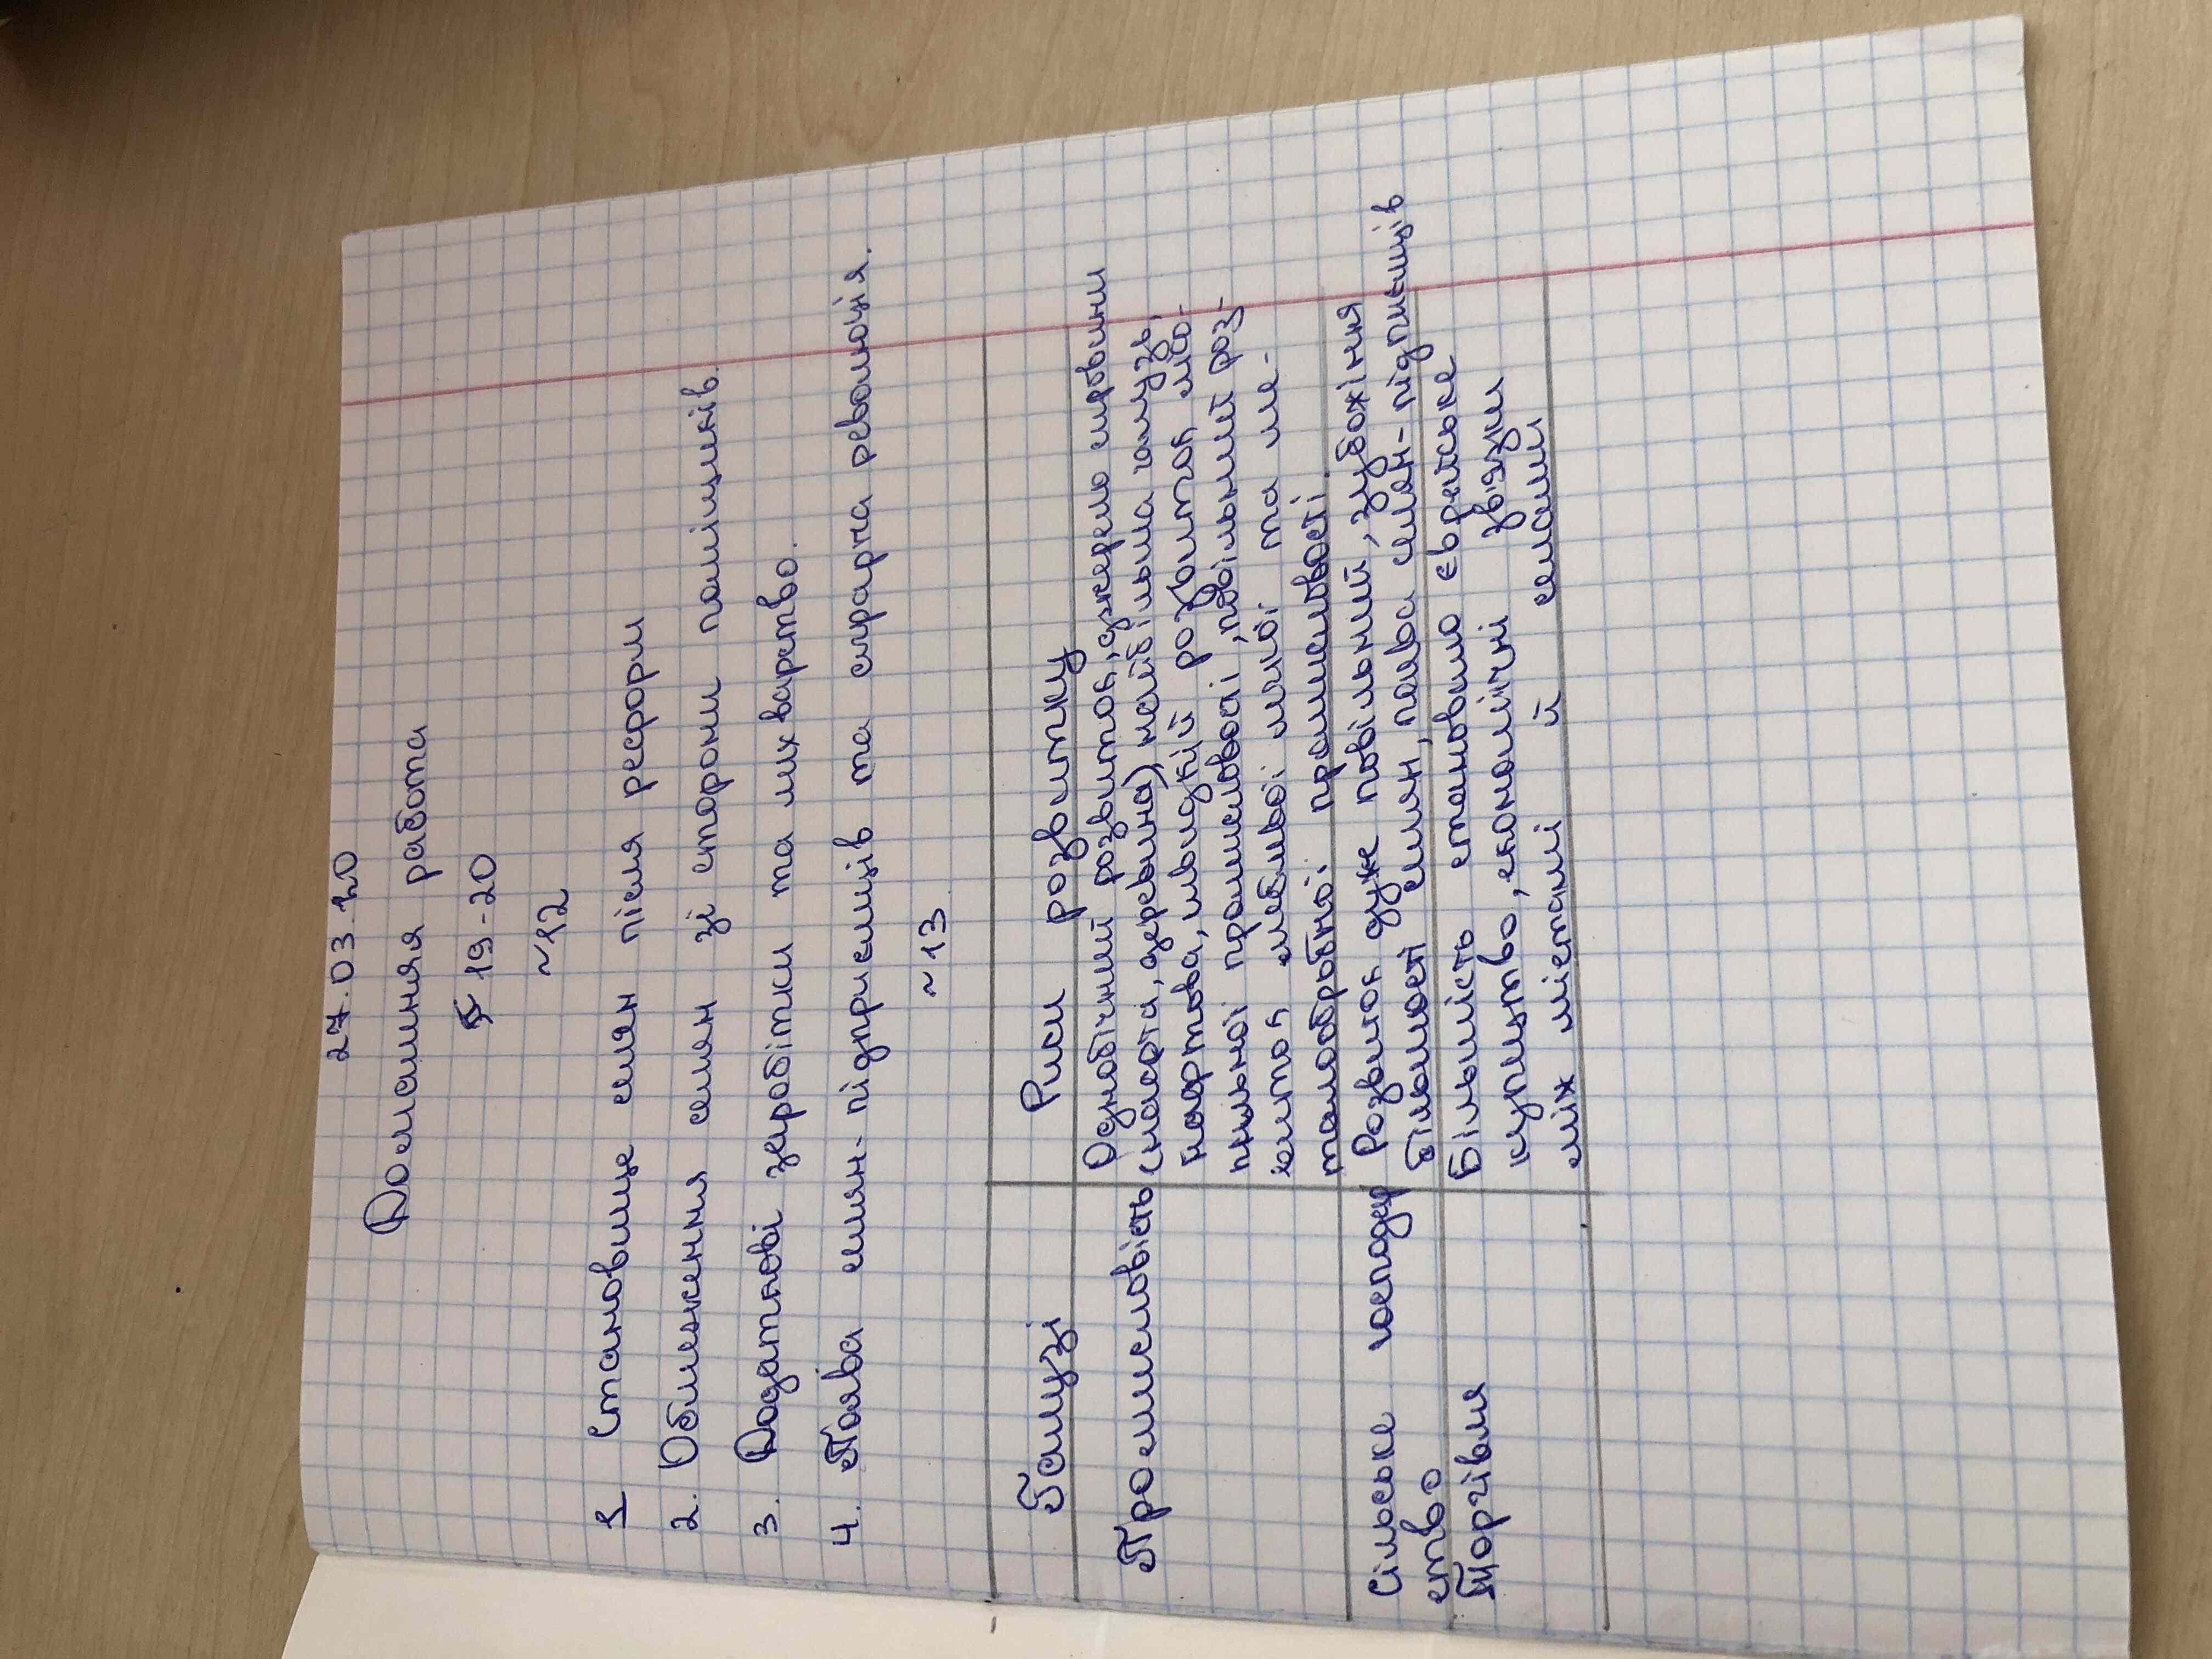 27.03.20
Домашня работа
§ 19-20
~12
1 Становище селян після реформи
2. Обмеження селян зі сторони поміщиків.
3. Додаткові заробітки та лихварство.
4. Поява селян-підприємців та аграрна революція.
~13
Галузі Риси розвитку
Промисловість Однобічний розвиток, джерело сировини
(нафта, деревина) найбільша галузь,
нафтова, швидкий розвиток
промисловості, повільний роз-
виток меблевої та ме-
талообробної промисловості.
Сільське господар Розвиток дуже повільний, зубожіння
ство більшості селян, поява селян-підприємців
Торгівля Більшість становило єврейське
купецтво, економічні звязки
між містами й селами